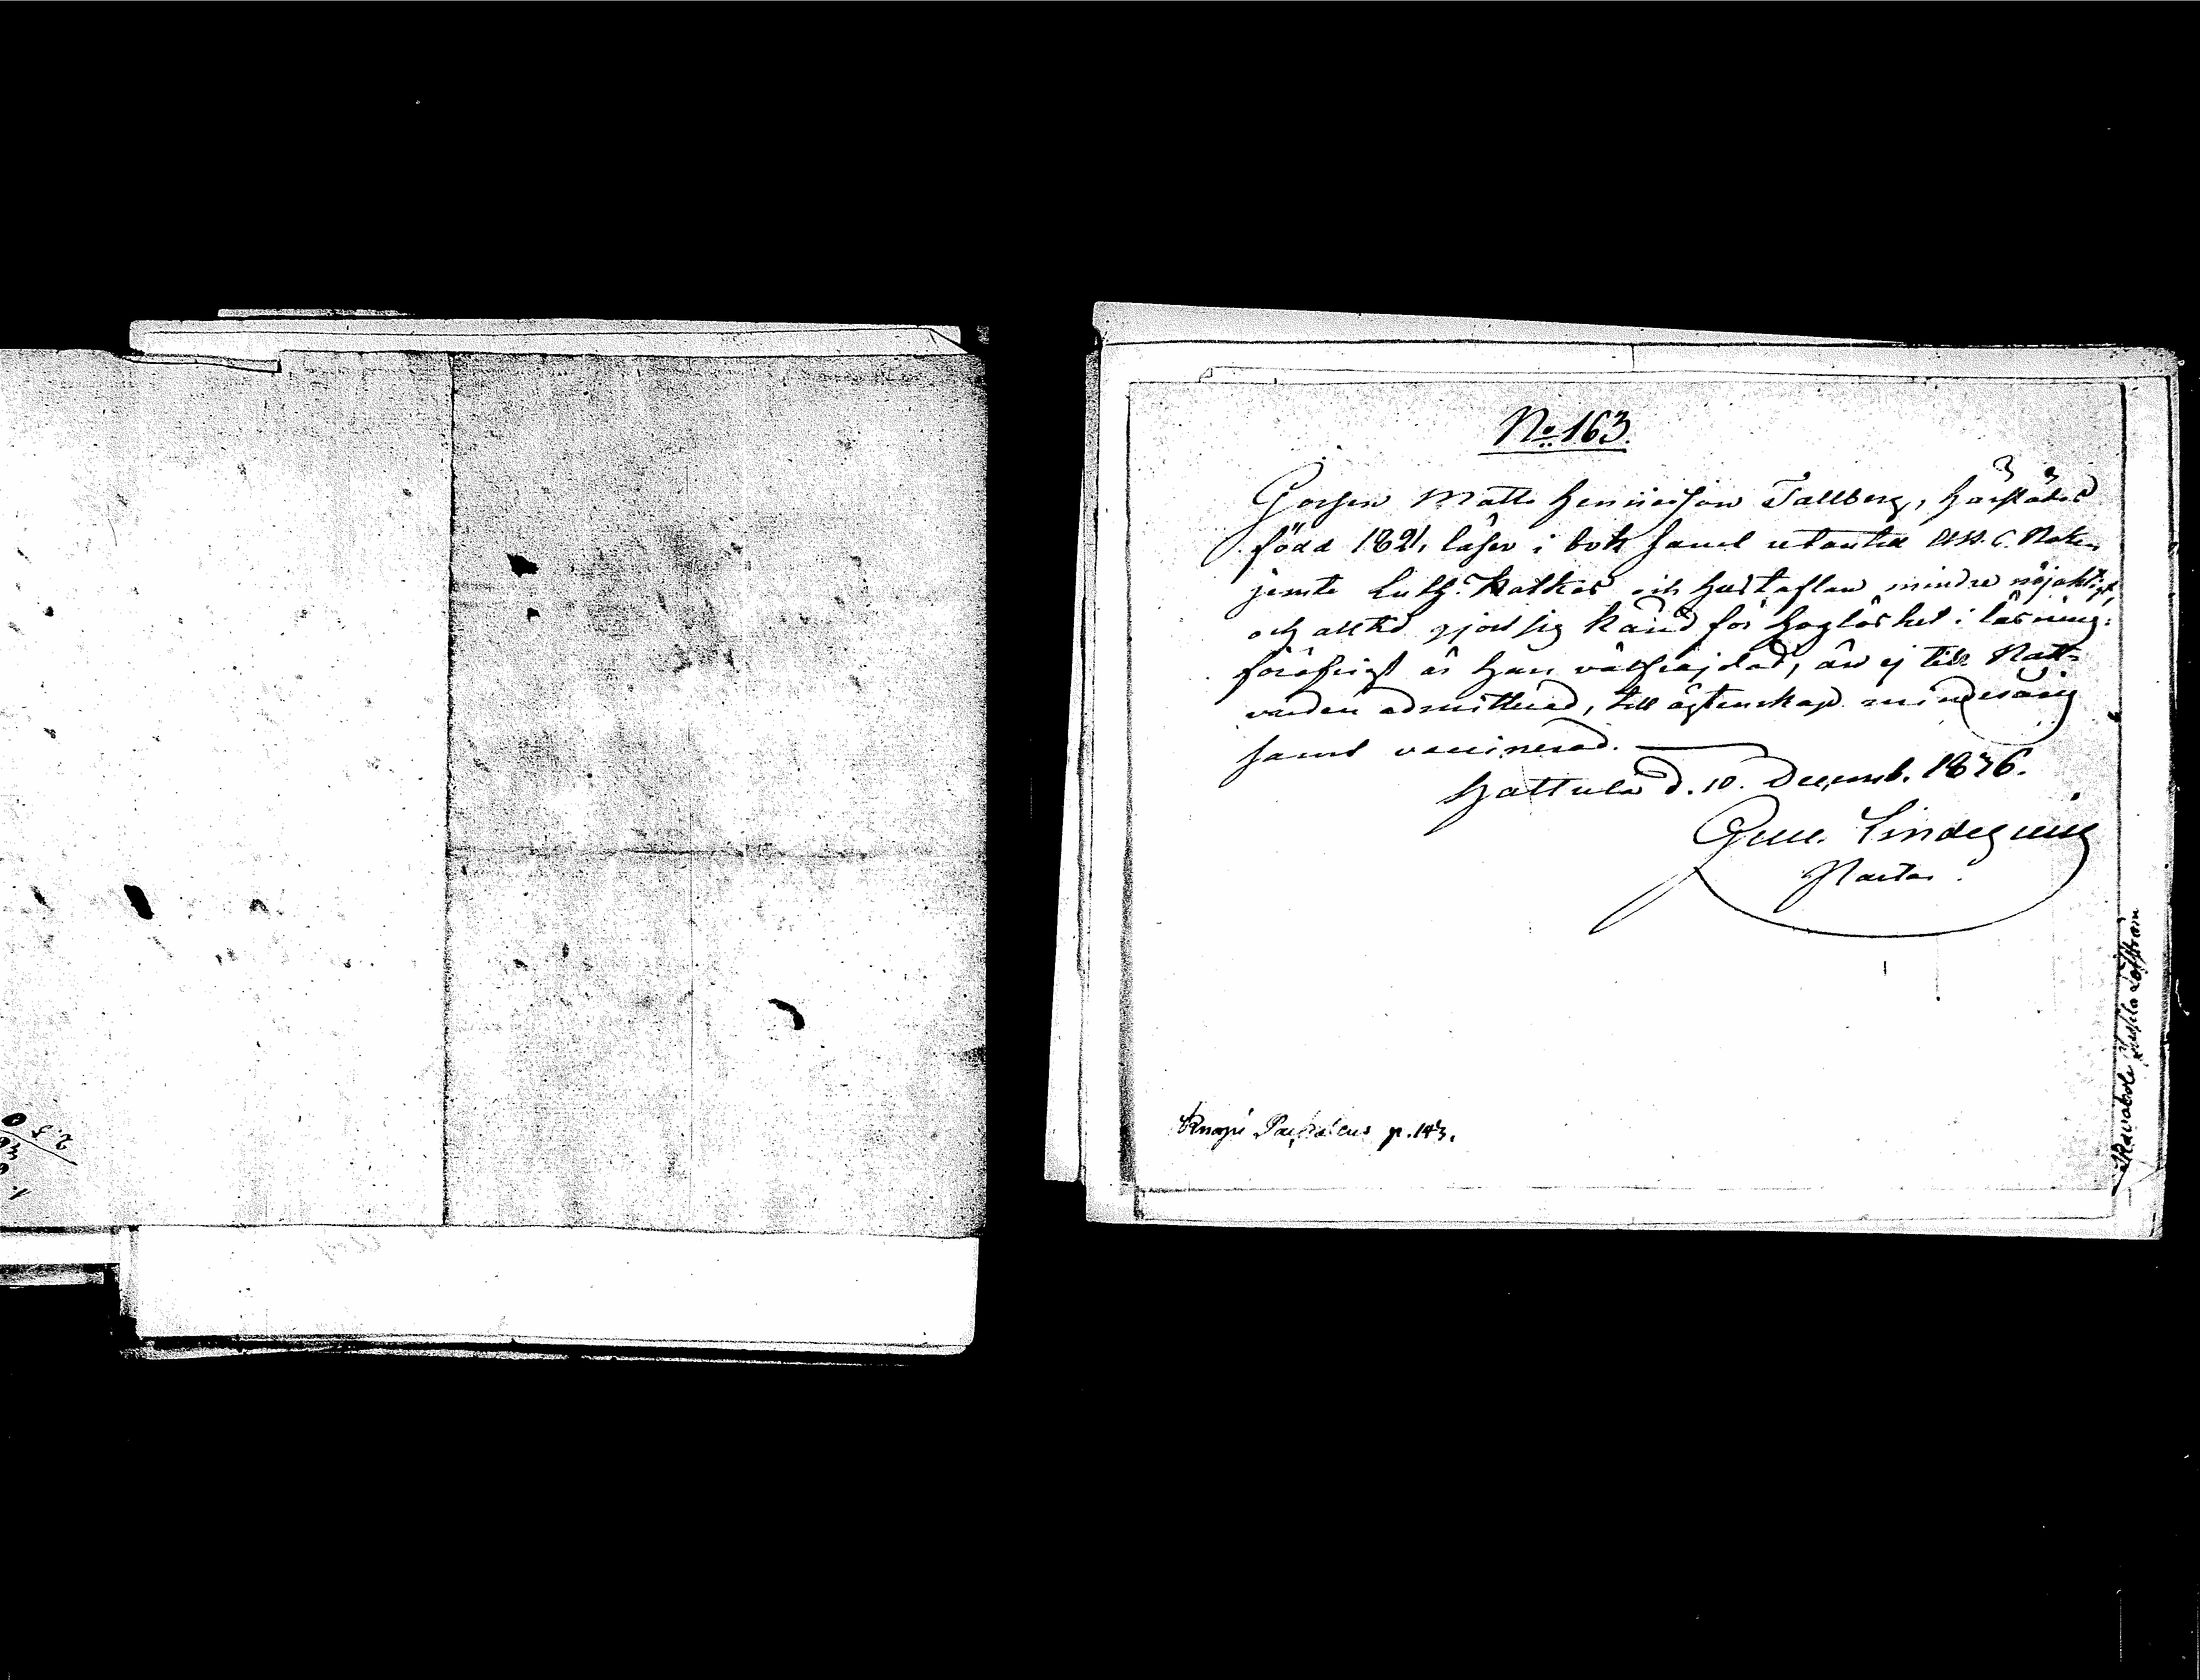 No 163.
Gossen Matts Henricsson Tallberg, härstädes
född 1821, läser i bok samt utantill A.B.C. Boken
jemte Luth. Katkes och Hustaflan mindre nöjaktigt,
och alltid gjort sig känd för hoglöshet i läsning:
föröfrigt är han välfrejdad, än ej till Natt-
varden admitterad, till ägtenskap mindreårig
samt vaccinerad.
Hattula d. 10. Decemb. 1836.
Lindeqvist
Pastor.
p. 143.
Löfström